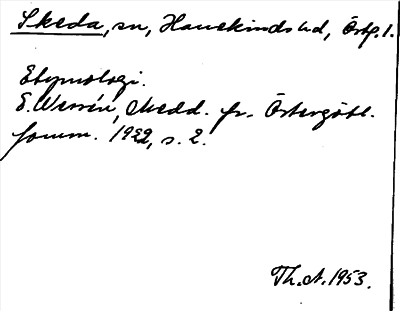 Skeda, sn, Hanekinds hd, Östg. l.
Etymologi.
E. Wessén, Medd. fr. Östergötl.
fornm. 1922, s. 2.
Th. A. 1953.